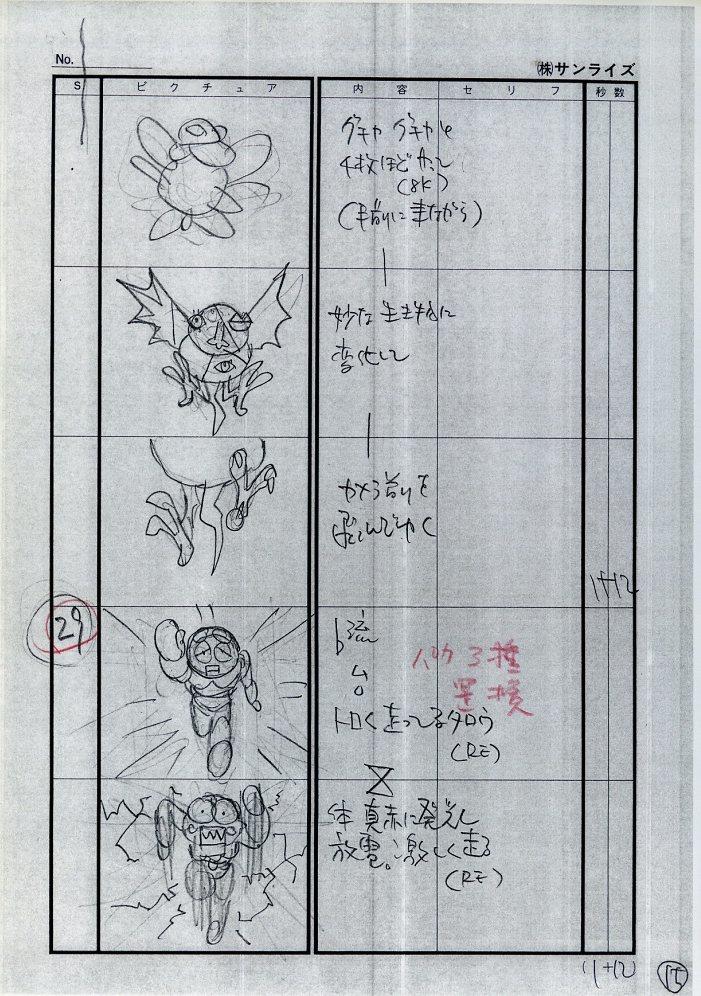 No.
㈱サンライズ
S ピクチュア 内容 セリフ 秒数
グチャグチャと
4枚ほどやって
(8K)
(手前に来ながら)
妙な生き物に
変化して
カメラ前を
飛んでゆく
1+12
29
b流
パカ3種
置換
トロく走ってるタロウ
(RE)
体真赤に発光し
放電。激しく走る
(RE)
(1+12)